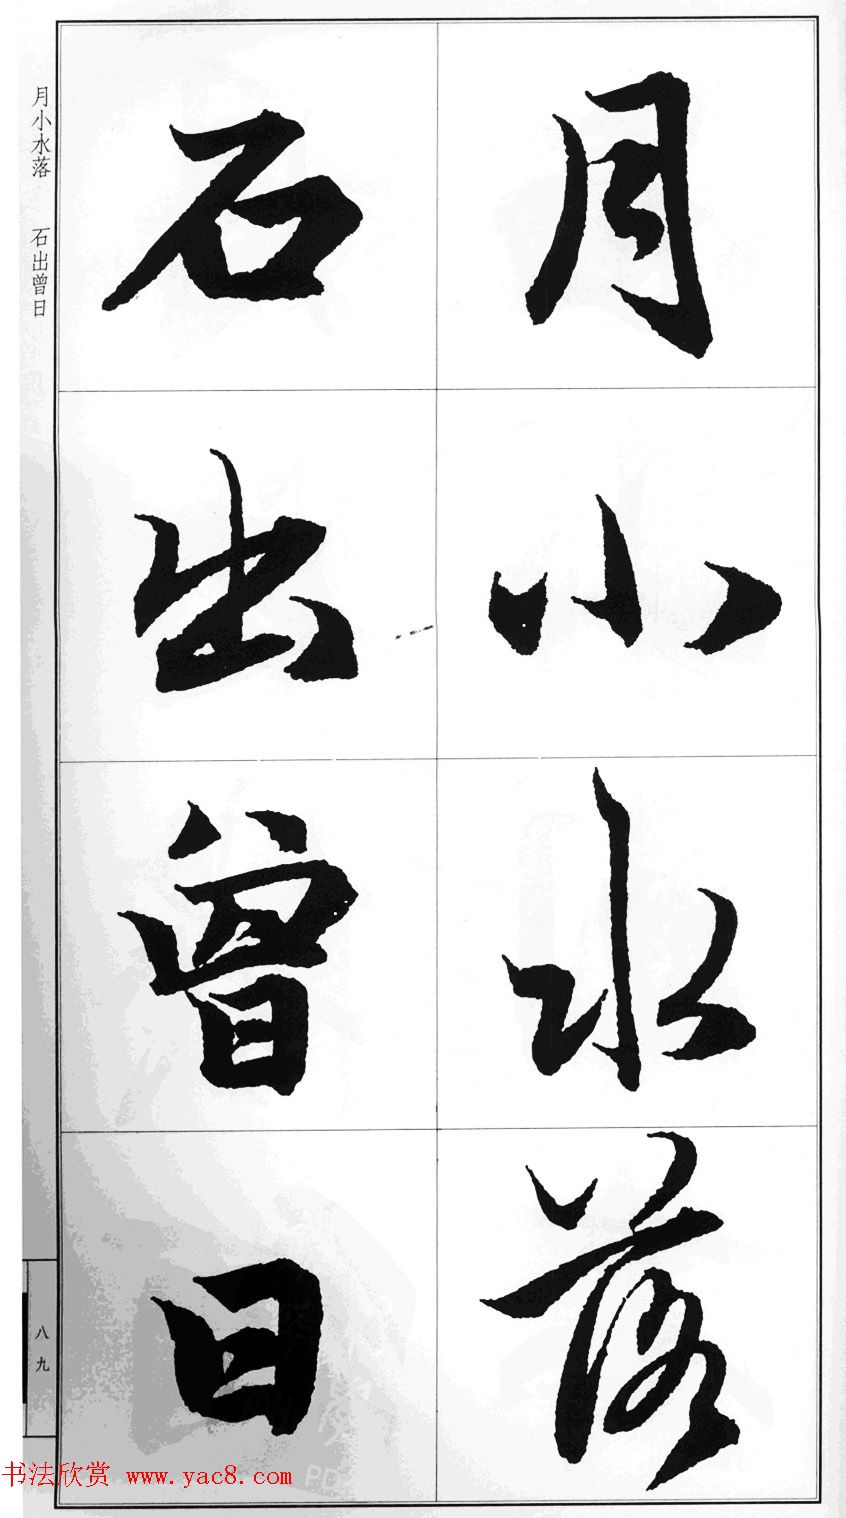 月小水落
石出曾日
月小水落 石出曾日
八九
书法欣赏 www.yac8.com